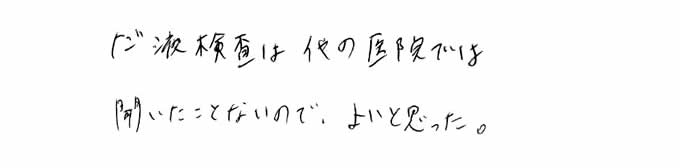 だ液検査は他の医院では
聞いたことないので、よいと思った。